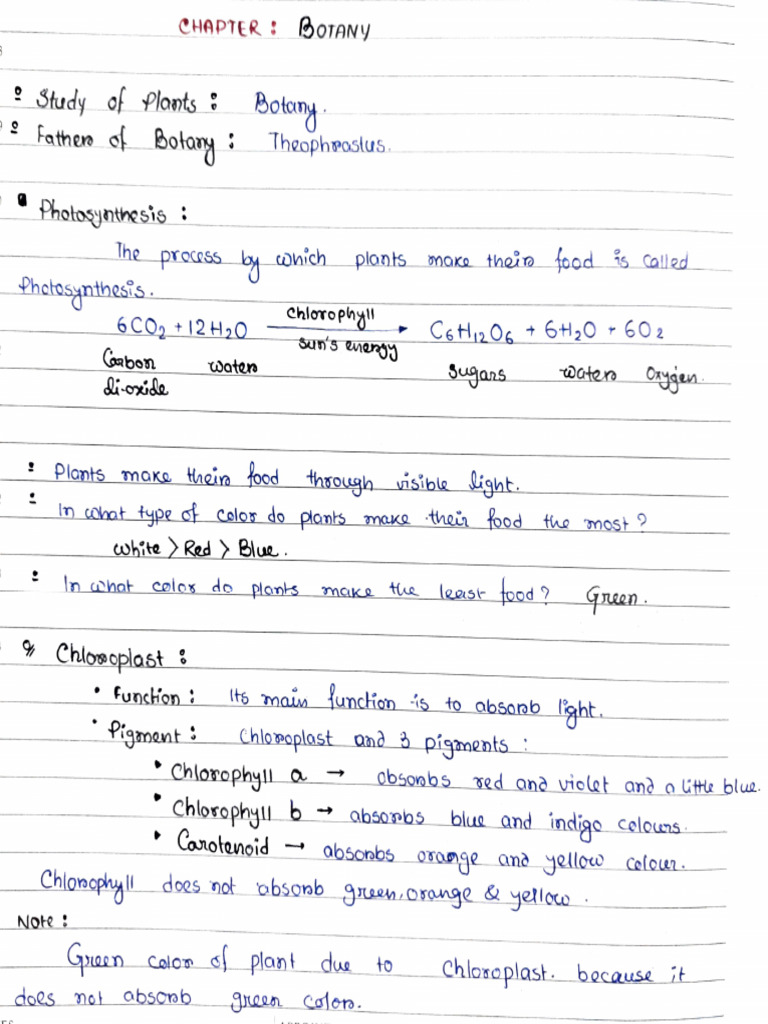 CHAPTER: BOTANY
Study of Plants: Botany.
Father of Botany: Theophrastus.
Photosynthesis:
The process by which plants make their food is called
Photosynthesis.
6CO2 + 12H2O Chlorophyll → C6H12O6 + 6H2O + 6O2
sun's energy
Carbon water sugars water oxygen.
di-oxide
Plants make their food through visible light.
In what type of color do plants make their food the most?
White > Red > Blue.
In what color do plants make the least food? Green.
Chloroplast:
• Function: Its main function is to absorb light.
• Pigment: Chloroplast and 3 pigments:
• Chlorophyll a → absorbs red and violet and a little blue.
• Chlorophyll b → absorbs blue and indigo colours.
• Carotenoid → absorbs orange and yellow colour.
Chlorophyll does not absorb green, orange & yellow.
Note:
Green color of plant due to Chloroplast. because it
does not absorb green color.